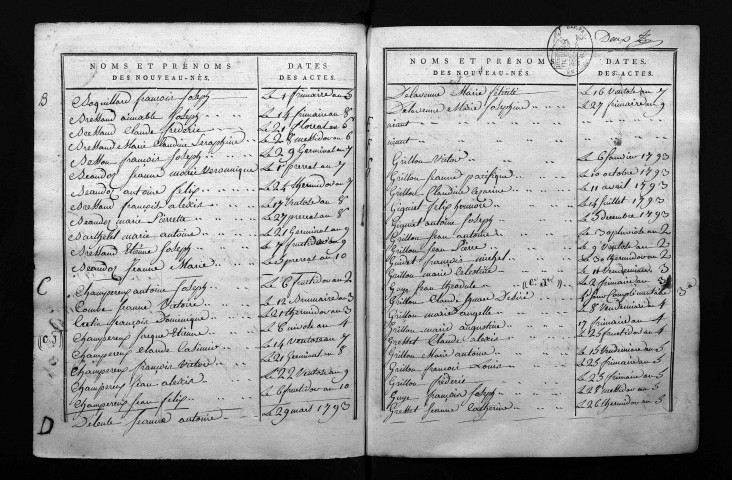 NOMS ET PRÉNOMS DES NOUVEAU-NÉS.
DATES DES ACTES.
B
Boquillard françois joseph Le 4 frimaire an 5
Bressand aimable Joseph Le 14 frimaire an 8
Bressand Claude frederic Le 21 floreal an 6
Bressand Marie Claudine Seraphine Le 28 messidor an 6
Besson françois joseph Le 29 Germinal an 7
Beaudoz jeanne marie Veronnique Le 1er prereal an 7
Beaudoz antoine felip Le 24 thermidor an 7
Bressand françois alexis Le 17 Ventose an 8
Beaudoz marie Pierrette Le 27 prereal an 8
Barthelet marie antoine Le 21 Germinal an 9
Bressand Etiene Joseph Le 7 fructidor an 9
Beaudoz Jeanne Marie Le 5 prereal an 10
C
Champereux antoine Joseph Le 6 fructidor an 2
Combe Jeanne Victoire Le 12 Brumaire an 3
françois Dominique Le 21 thermidor an 3
Champereux Etienne Le 6 nivose an 4
Champereux Claude Casimir Le 14 Ventose an 7
Champereux françois Victoire Le 21 Germinal an 8
Champereux jean alexis Le 22 Ventose an 9
Champereux jean felip Le 6 fructidor an 10
D
Deleule Jeanne antoine Le 29 mars 1793
Deux
NOMS ET PRÉNOMS DES NOUVEAU-NÉS.
DATES DES ACTES.
Delavenne Marie felicité Le 16 Ventose an 7
Delavenne Marie Josephine Le 27 frimaire an 9
néant
néant
Grillon Victor Le 6 janvier 1793
Grillon jeanne pacifique Le 10 octobre 1793
Grillon Claudine Le 11 avril 1793
Giguet felip honnoré Le 14 juillet 1793
Giguet antoine joseph Le 5 décembre 1793
Grillon jean antoine Le 13 pluviose an 2
Grillon jean Pierre Le 9 Ventose an 2
Guidet françois michel Le 30 thermidor an 2
Grillon marie Celestine Le 11 Vendemiaire 3
Guye jean theodule Le 2 frimaire an 3
Grillon Claude Desiré 4e jour Complementaire 3e
Grillon marie Le 8 Vendemiaire 4
Grillon marie augustine 17 frimaire an 4
Gresset Claude alexis Le 25 fructidor an 4
Grillon Marie antoine Le 15 Vendemiaire
Grillon francois Louis Le 25 frimaire an 5
Grillon frederic Le 25 frimaire an 5
Guye françois joseph Le 28 messidor an 5
Gresset jeanne Catherine Le 26 thermidor an 5